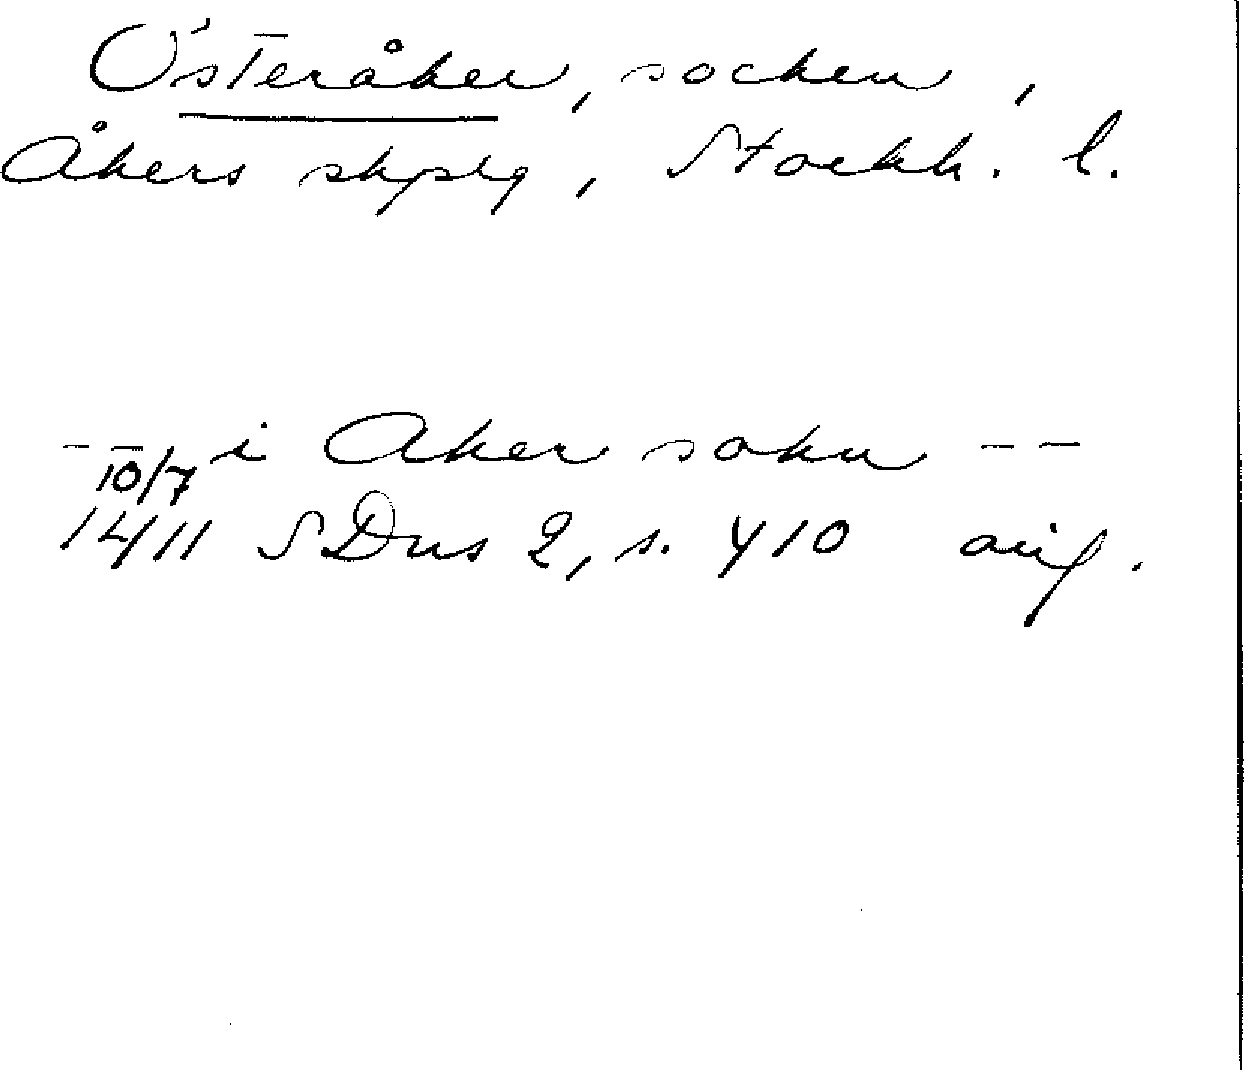 Österåker, socken,
Åkers skplg, Stockh. l.
-- i Aker sokn --
10/7
1411 SDns 2, s. 410 avf.